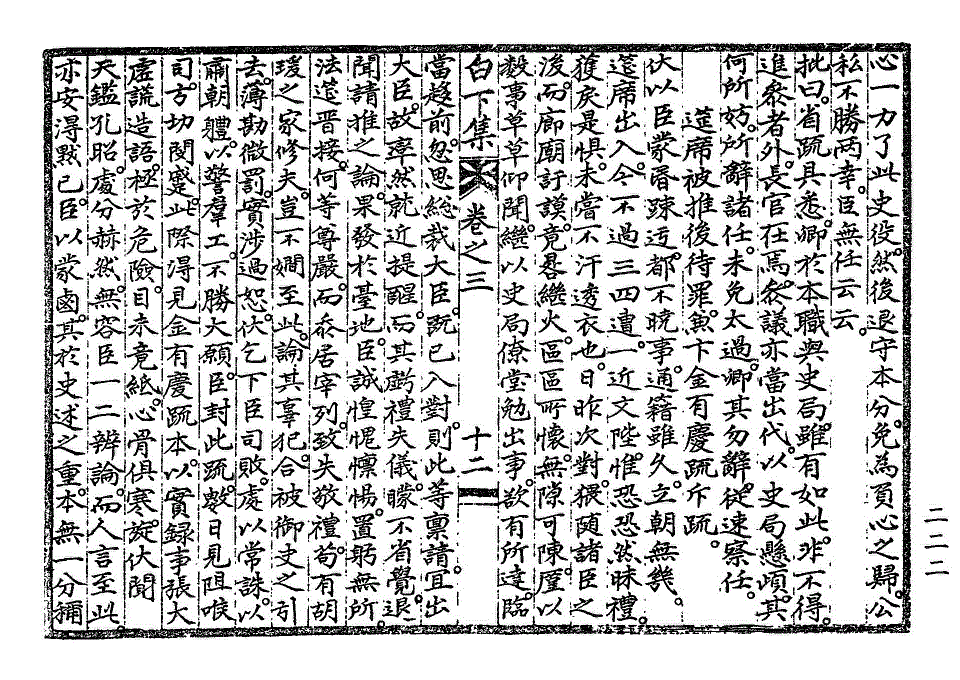 心一力了此史役然後退守本分免為負心之歸公
私不勝兩幸臣無任云云
批曰省疏具悉卿於本職與史局雖有如此非不得
進參者外長官在焉參議亦當出代以史局懸頉其
何所妨所辭諸任未免太過卿其勿辭從速察任
筵席被推後待罪兼卞金有慶疏斥疏
伏以臣蒙昏踈迃都不曉事通籍雖久立朝無幾
筵席出入今不過三四遭一近文陛惟恐恐然昧禮
獲戾是懼未嘗不汗透衣也日昨次對猥随諸臣之
後而廊廟訏謨竟晷繼火區區所懷無隙可陳厪以
數事草草仰聞繼以史局僚堂勉出事欲有所達臨
白下集 卷之三 十二
當趍前忽思緫裁大臣旣已入對則此等稟請宜出
大臣故率然就近提醒而其虧禮失儀矇不省覺退
聞請推之論果發於臺地臣誠惶愧懍惕置躬無所
法筵晋接何等尊嚴而忝居宰列致失敬禮苟有胡
瑗之家修夫豈不嫺至此論其辜犯合被御史之引
去薄勘微罰實涉過恕伏乞下臣司敗處以常誅以
肅朝軆以警羣工不勝大願臣封此疏數日見阻喉
司方切悶蹙此際淂見金有慶疏本以實録事張大
虛謊造語極於危險目未竟紙心骨俱寒旋伏聞
天鑑孔昭處分赫然無容臣一二辨論而人言至此
亦安淂默已臣以蒙國其於史述之重本無一分稱
二二二